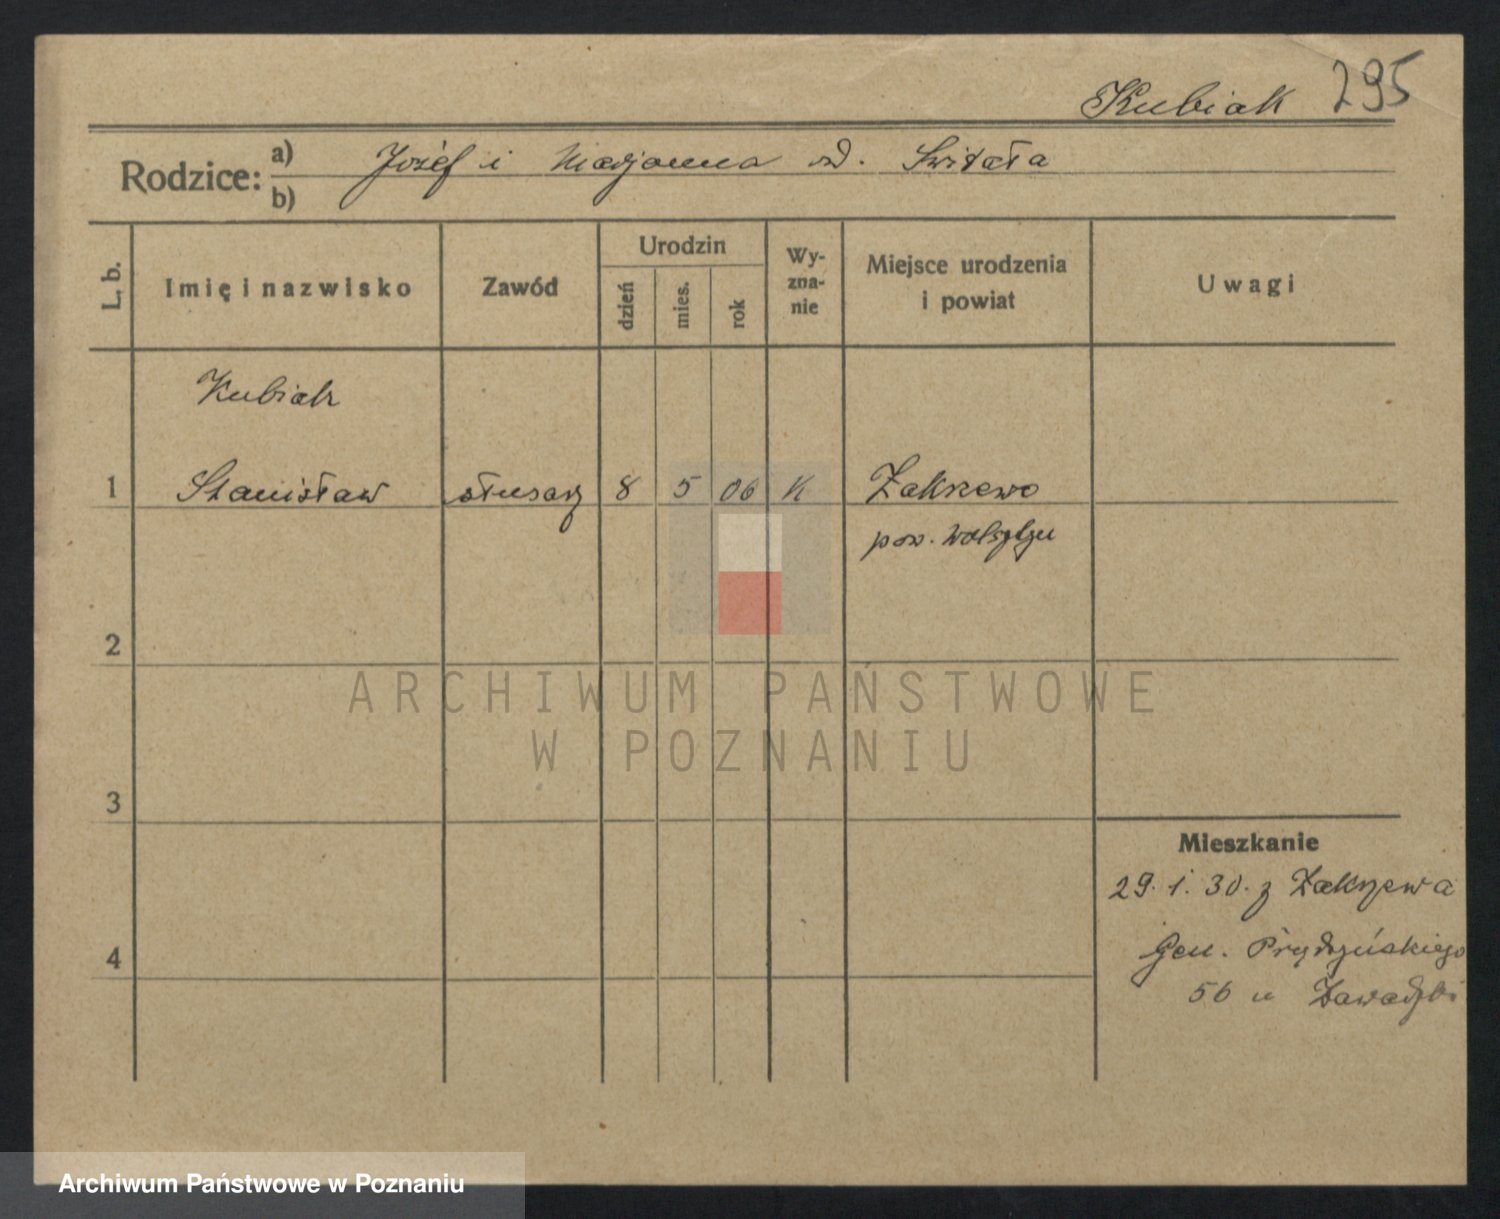 Kubiak 295
Rodzice: a) b) Józef i Marjanna od. Świtała
L. b. Imię i nazwisko Zawód Urodzin dzień mies. rok Wy-zna-nie Miejsce urodzenia i powiat Uwagi
Kubiak
1 Stanisław ślusarz 8 5 06 K Zakrzewo
pow.
2
ARCHIWUM PAŃSTWOWE
W POZNANIU
3
Mieszkanie
29. 1. 30. z Zakrzewa
Gen. Prądzyńskiego
4
56 u
Archiwum Państwowe w Poznaniu